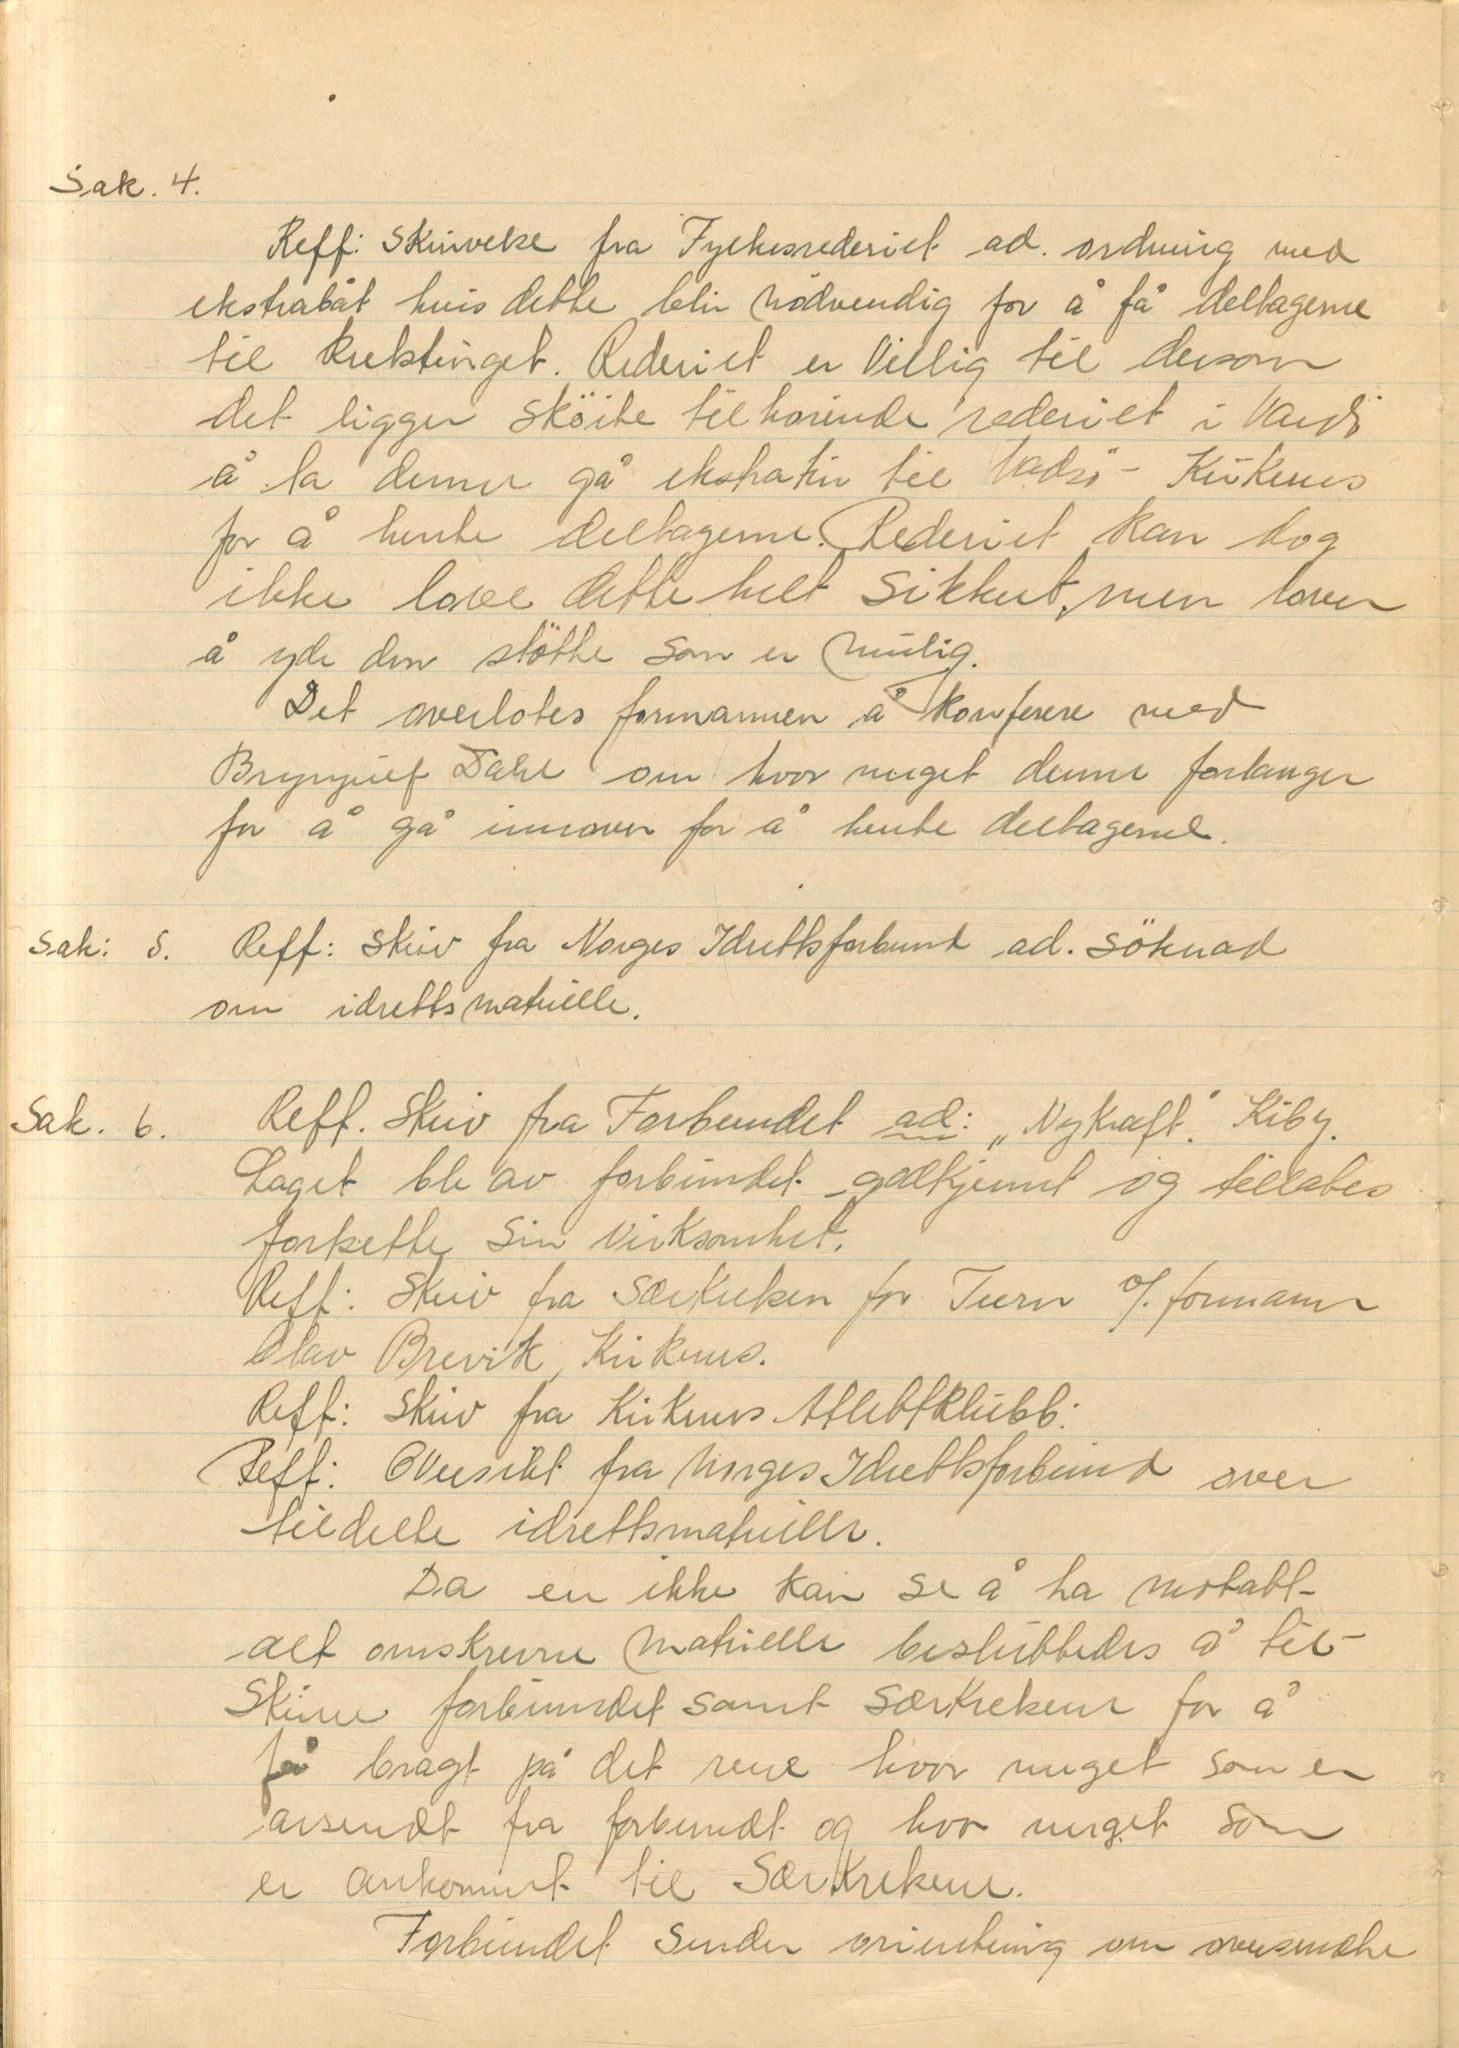 Sak. 4.
Reff: Skrivelse fra Fylkesrederiet ad. ordning med
ekstrabåt hvis dette blir nödvendig for å få deltagerne
til kretstinget. Rederiet er villig til dersom
det ligger sköite tilhörende rederiet i Vardö
å la denne gå ekstratur til Vadsö - Kirkenes
for å hente deltagerne. Rederiet kan dog
ikke love dette helt sikkert, men lover
å yde den stötte som er mulig.
Det overlotes formannen å konferere med
Brynjulf Dahl om hvor meget denne forlanger
for å gå innover for å hente deltagerne.
Sak: 5. Reff: Skriv fra Norges Idrettsforbund ad. söknad
om idrettsmatrielle.
Sak. 6. Reff. Skriv fra Forbundet ad: „Nykraft". Kiby.
Laget ble av forbundet godkjennt og tillates
forsette sin virksomhet.
Reff: Skriv fra Særkretsen for Turn v/. formann
Olav Brevik, Kirkenes.
Reff: Skriv fra Kirkenes Atletklubb:
Reff: Oversikt fra Norges Idrettsforbund over
tildelte idrettsmatrielle.
Da en ikke kan se å ha mottatt
alt omskrevne matrielle besluttedes å til-
skrive forbundet samt særkretsene for å
få bragt på det rene hvor meget som er
avsendt fra forbundt og hvor meget som
er ankommet til Særkretsene.
Forbundet sender orientering om oversendte